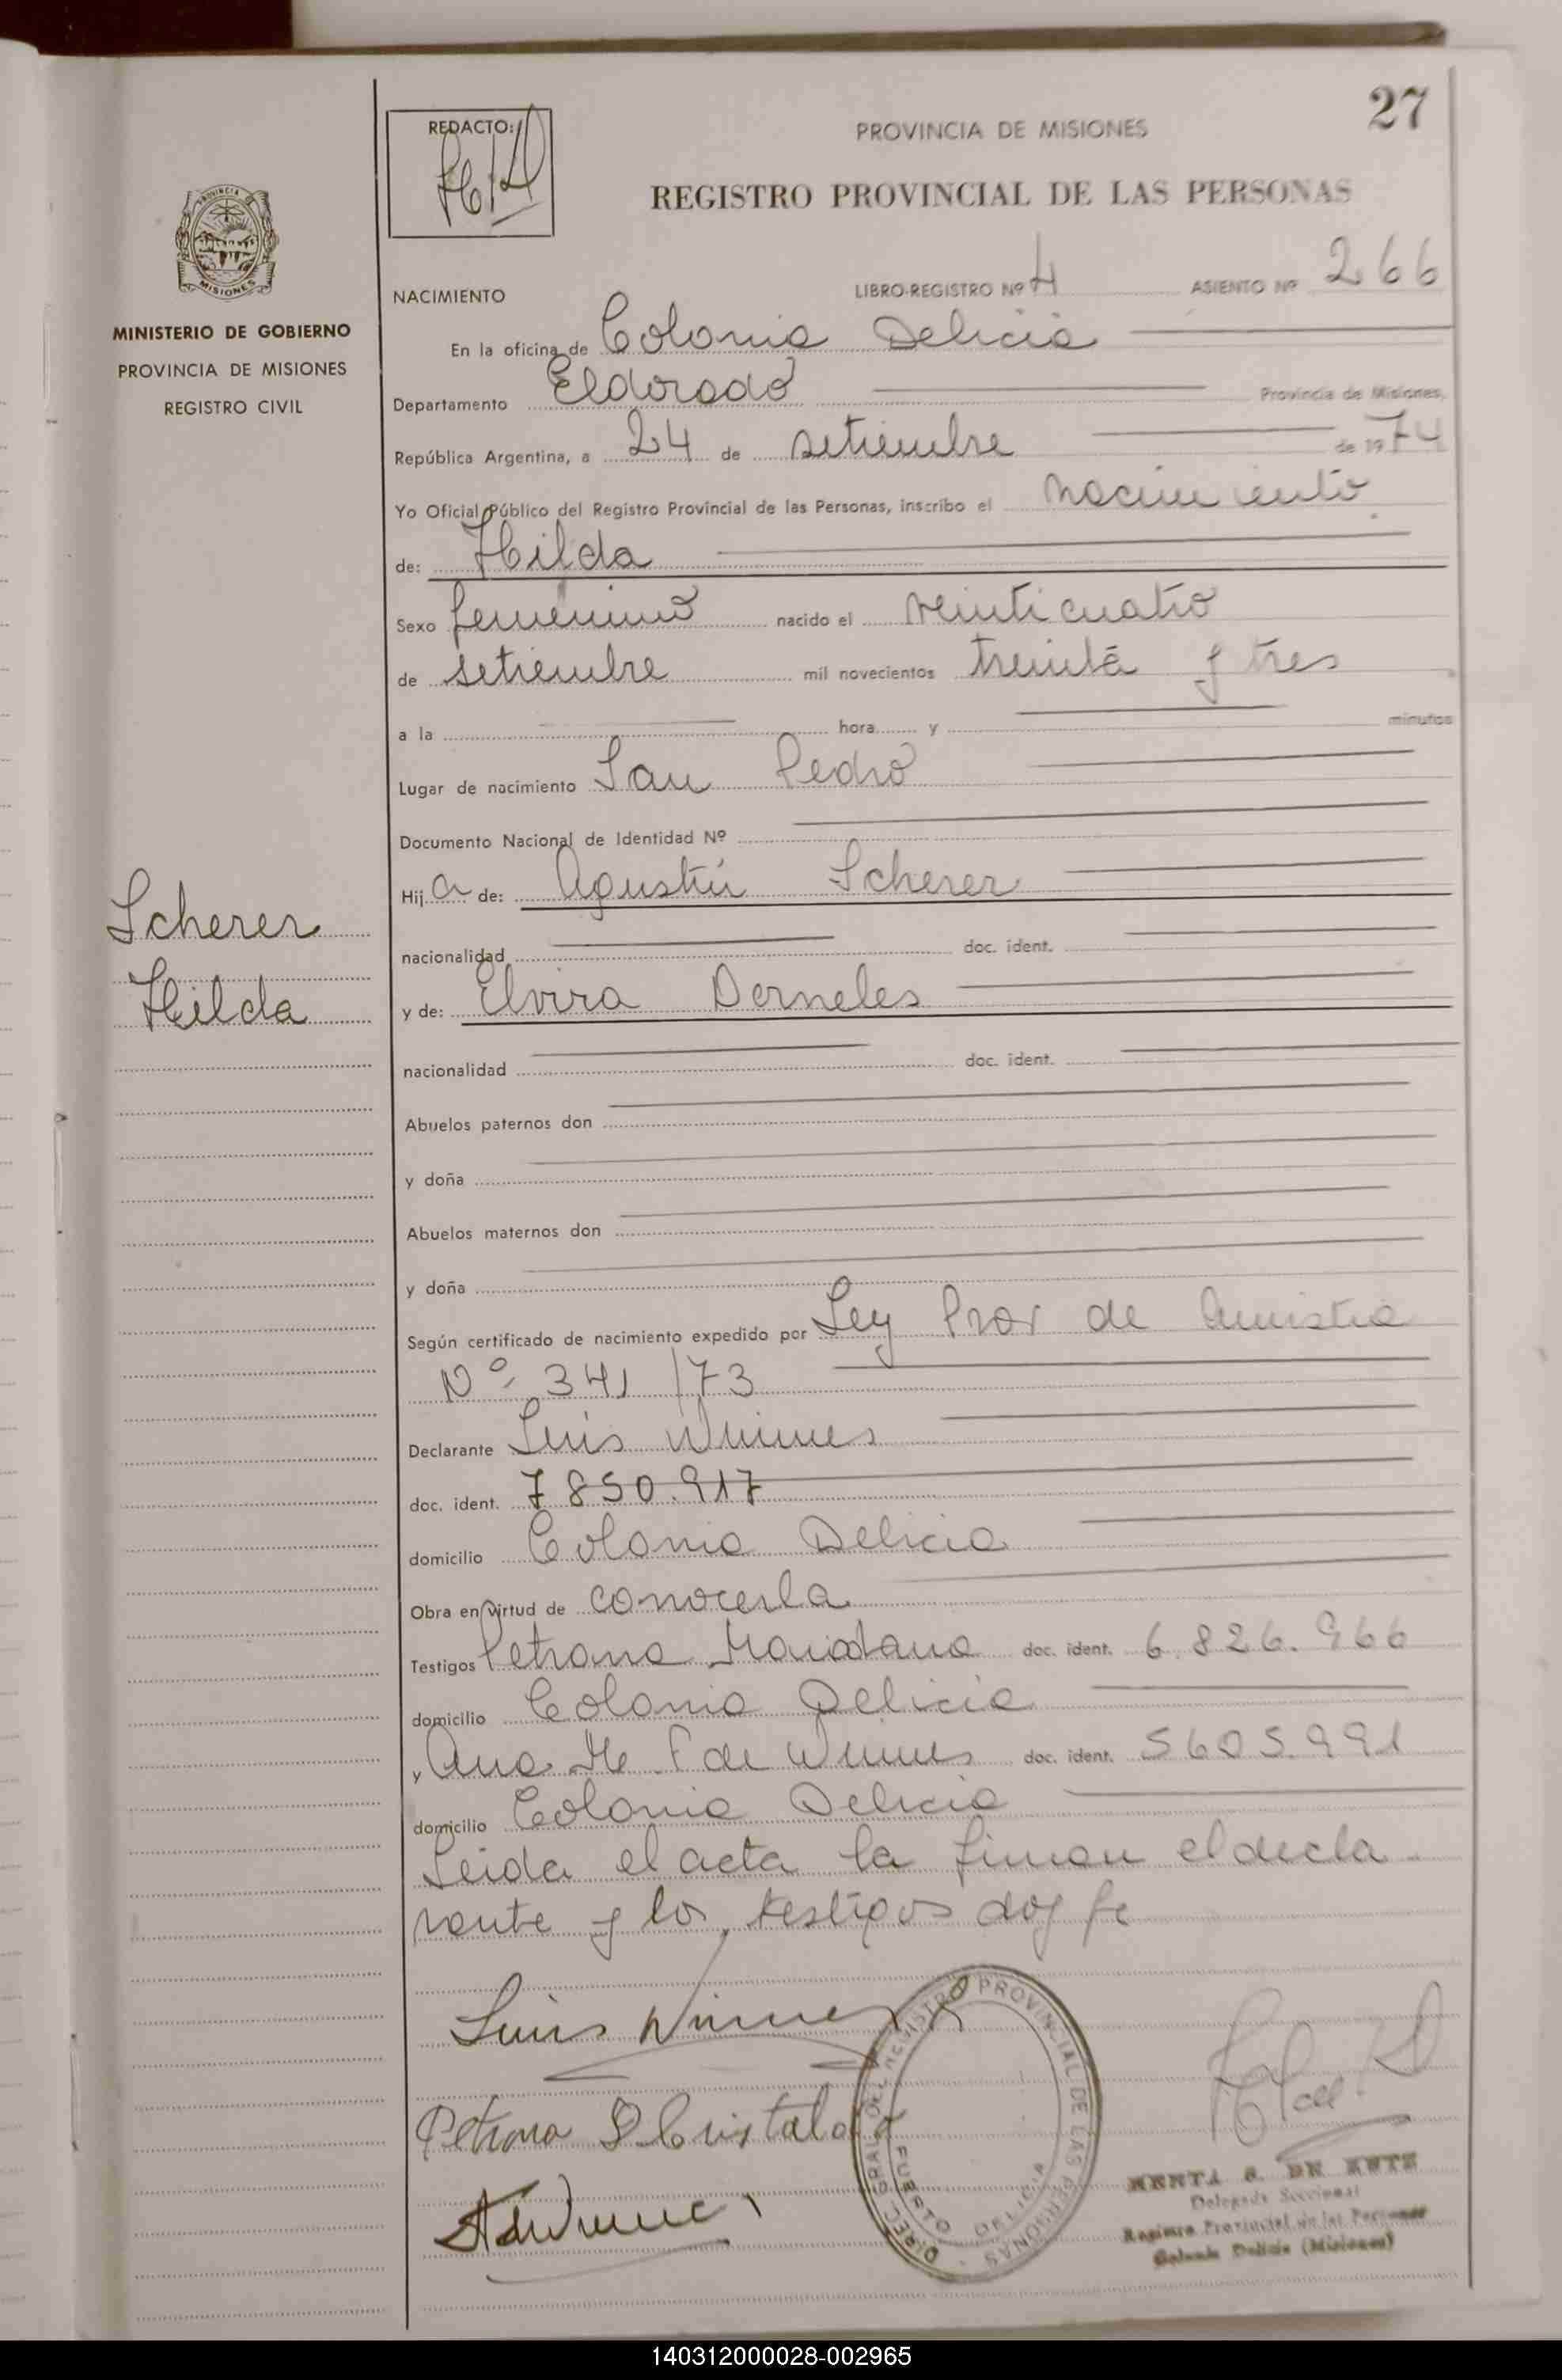 27
REDACTO:
PROVINCIA DE MISIONES
REGISTRO PROVINCIAL DE LAS PERSONAS
MINISTERIO DE GOBIERNO
PROVINCIA DE MISIONES
REGISTRO CIVIL
NACIMIENTO LIBRO-REGISTRO Nº 4 ASIENTO Nº 266
En la oficina de Colonia Delicia
Departamento Eldorado Provincia de Misiones,
República Argentina, a 24 de setiembre de 1974
Yo Oficial Público del Registro Provincial de las Personas, inscribo el nacimiento
de: Hilda
Sexo femenino nacido el veinticuatro
de setiembre mil novecientos treinta y tres
a la hora y minutos
Lugar de nacimiento San Pedro
Documento Nacional de Identidad Nº
Hija de: Agustín Scherer
Scherer
nacionalidad doc. ident.
Hilda
y de: Elvira Dorneles
nacionalidad doc. ident.
Abuelos paternos don
y doña
Abuelos maternos don
y doña
Según certificado de nacimiento expedido por Ley Prov de Amnistia
Nº 341/73
Declarante Luis
doc. ident. 7850.917
domicilio Colonia Delicia
Obra en virtud de conocerla
Testigos Petrona doc. ident. 6.826.966
domicilio Colonia Delicia
y Ana de doc. ident. 5605.991
domicilio Colonia Delicia
Leida el acta la firman el decla-
rante y los testigos doy fe
Luis
Petrona
DIREC. GRAL. DEL REGISTRO PROVINCIAL DE LAS PERSONAS
PUERTO DELICIA
Delegada Seccional
Registro Provincial de las Personas
Colonia Delicia (Misiones)
140312000028-002965